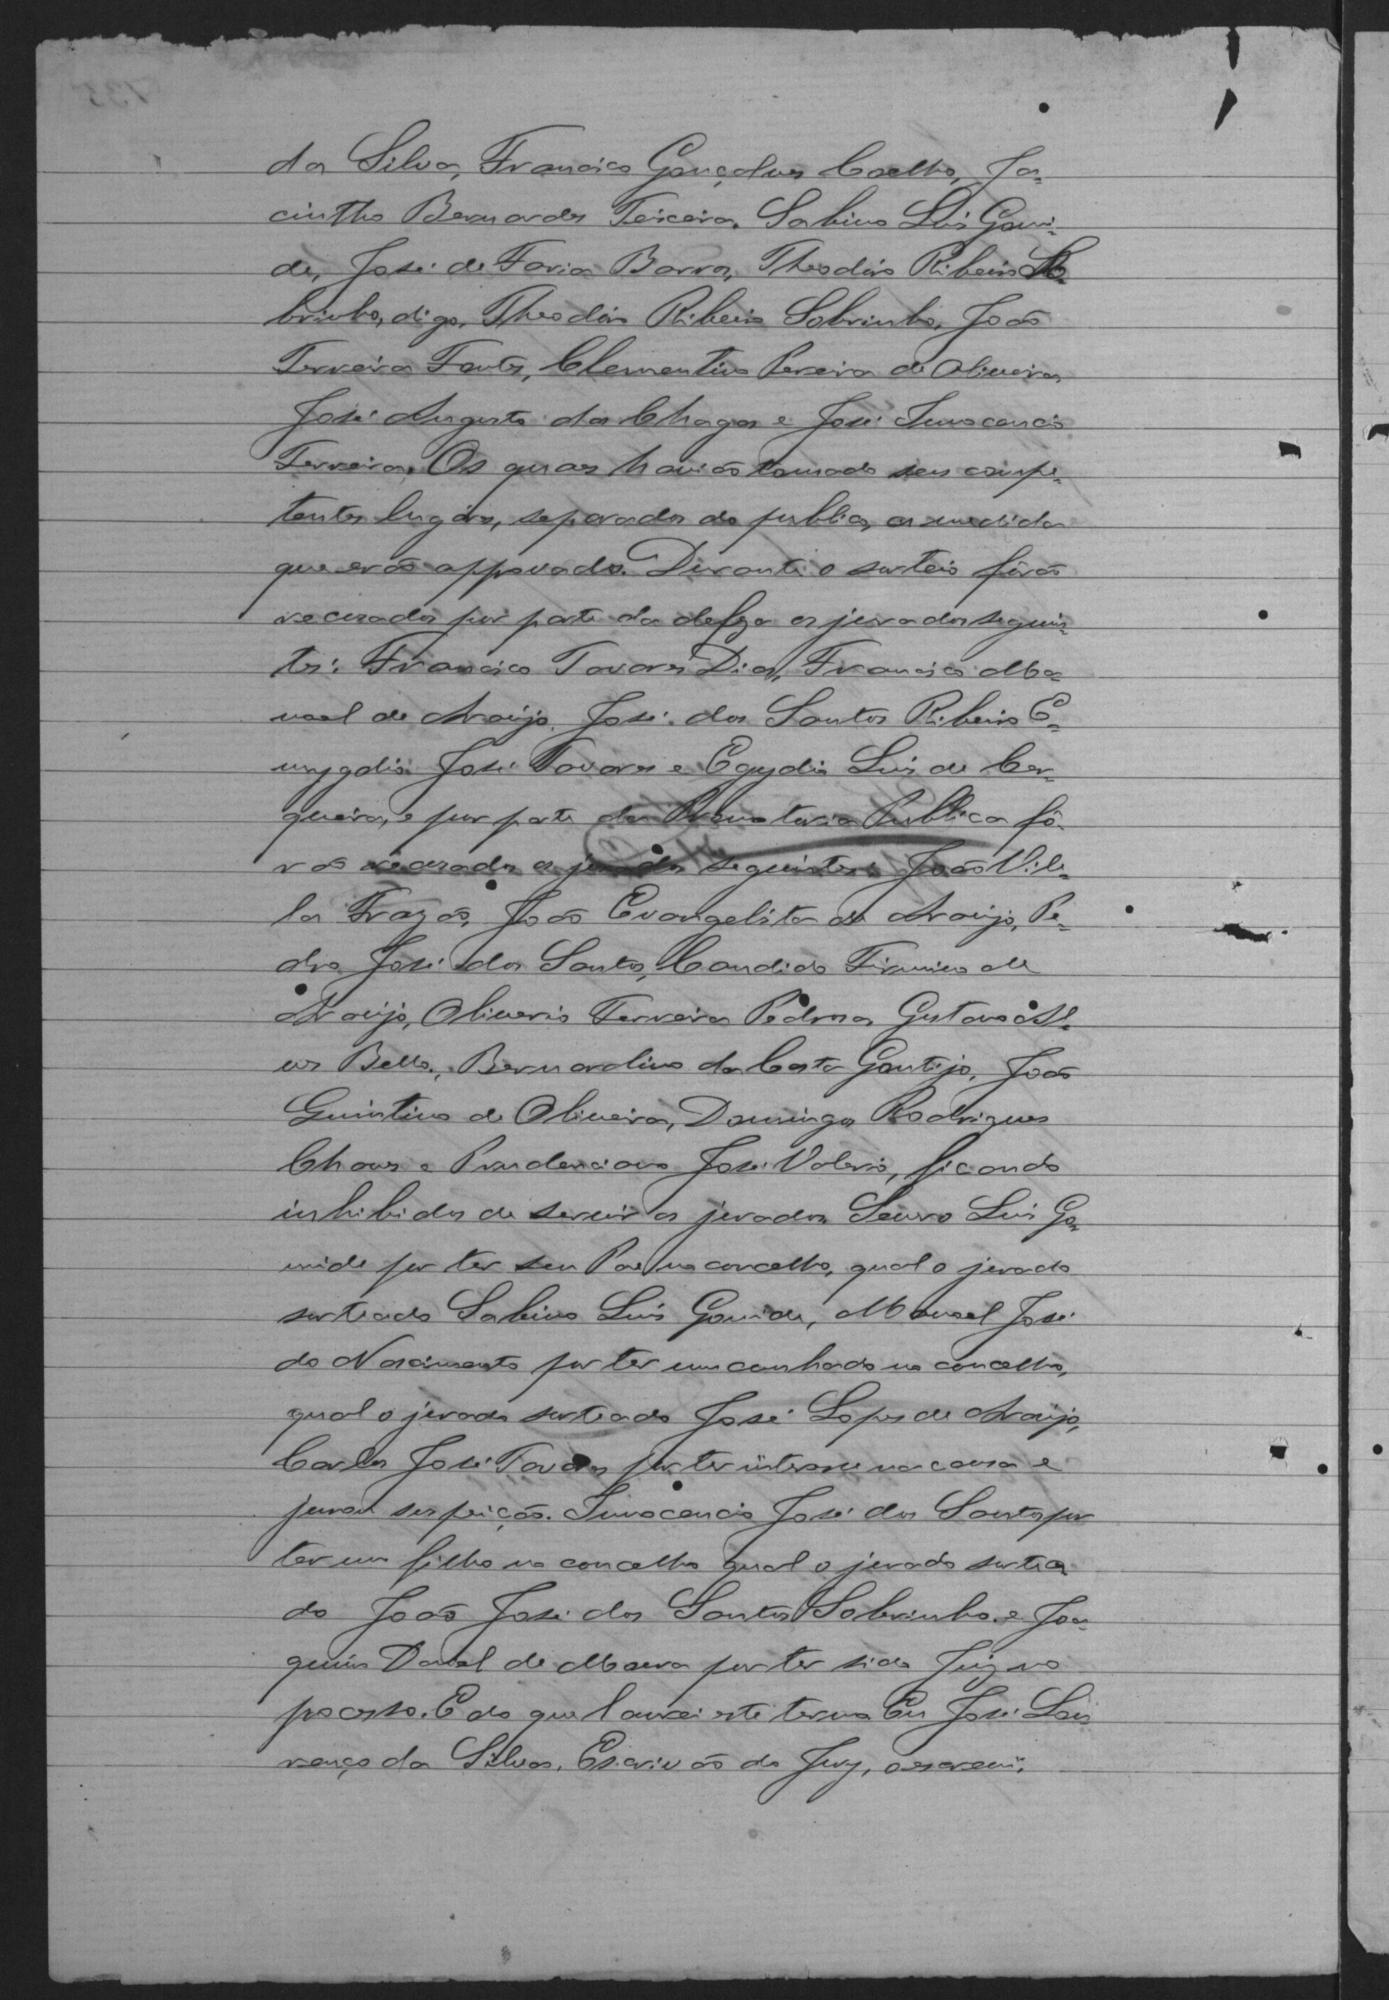 da Silva, Francisco Gonçalves Coelho, Ja-
cintho Bernardes Teixeira, Sabino Luis Gomi-
de, José de Faria Barros, Theodoro Ribeiro So-
brinho, digo, Theodoro Ribeiro Sobrinho, João
Ferreira Fontes, Clementino Pereira de Oliveira
José Augusto das Chagas e José Innocencio
Ferreira. Os quaes havião tomado seus compe-
tentes lugares, separados do publico, a medida
que erão approvados. Durante o sorteio fôrão
recusados por parte da defeza os jurados seguin-
tes: Francisco Tavares Dias, Francisco Ma-
noel de Araujo, José dos Santos Ribeiro E-
mygdio José Tavares e Egydio Luis de Cer-
queira, e por parte da Promotoria Publica fô-
rão recusados os jurados seguintes: João Vile-
la Frazão, João Evangelista de Araujo, Pe-
dro José dos Santos, Candido Firmino de
Araujo, Oliverio Ferreira Pedrosa, Gustavo Al-
ves Bello, Bernardino da Costa Gontijo, João
Quintino de Oliveira, Domingos Rodrigues
Chaves e Prudenciano José Valerio, ficando
inhibidos de servir os jurados Lauro Luis Go-
mide por ter seu Pae no concelho, qual o jurado
sorteado Sabino Luis Gomide, Manoel José
do Nascimento por ter um cunhado no concelho,
qual o jurado sorteado José Lopes de Araujo,
Carlos José Tavares por ter interesse na causa e
jurou suspeição. Innocencio José dos Santos por
ter um filho no concelho qual o jurado sortea
do João José dos Santos Sobrinho. e Joa-
quim Daniel de Moura por ter sido Juiz no
pocesso. E do que lavrei este termo Eu José Lou
renço da Silva, Escrivão do Jury, o escrevi.